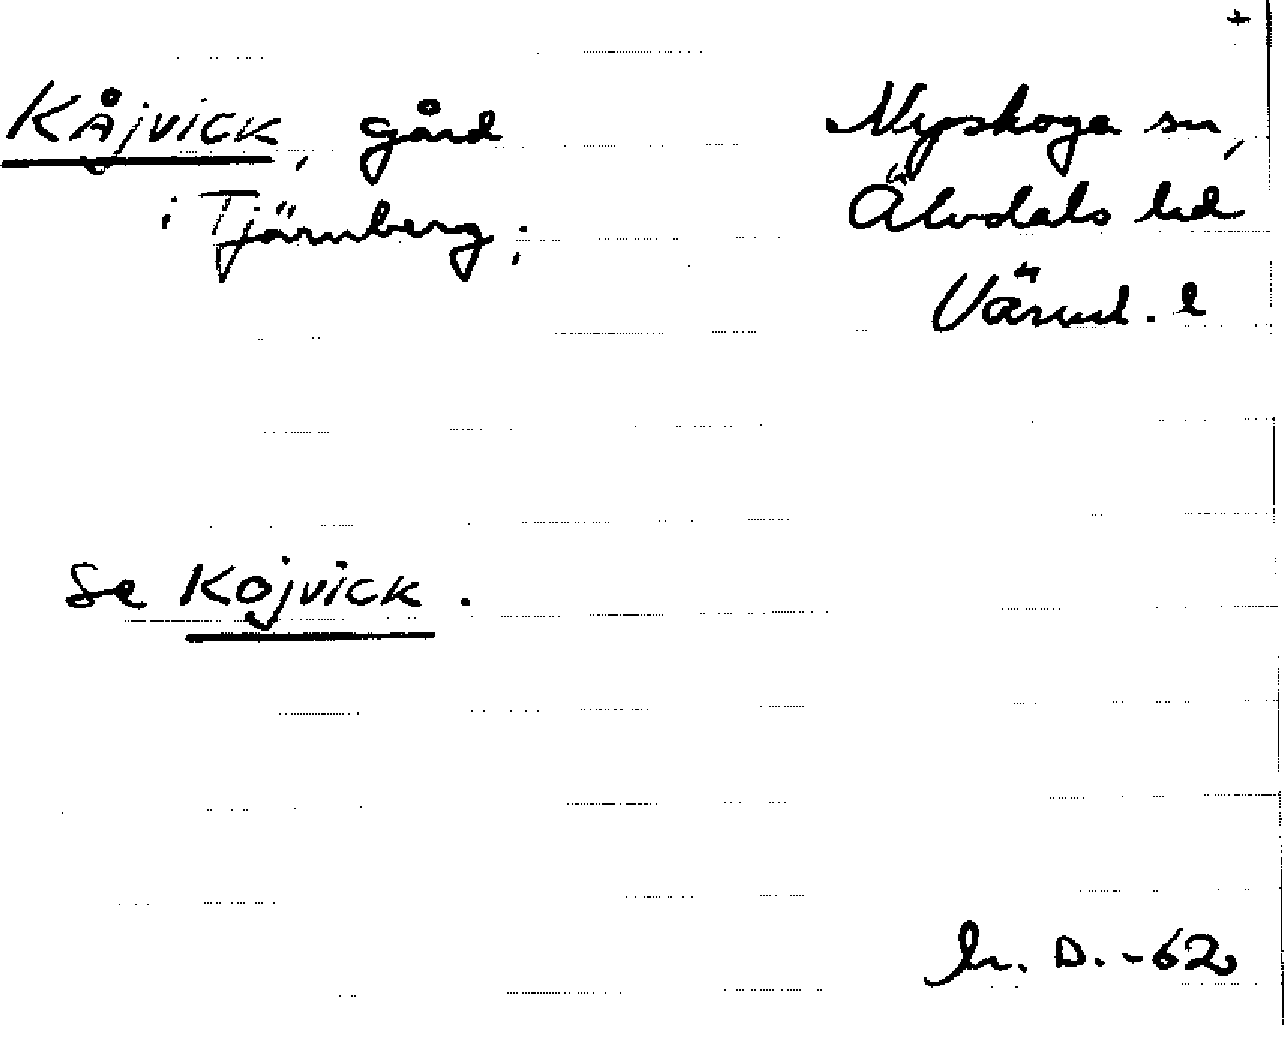 +
Kåjvick, gård
i Tjärnberg;
Nyskoga sn,
Älvdals hd
Värml. l
Se Kojvick.
D. -62